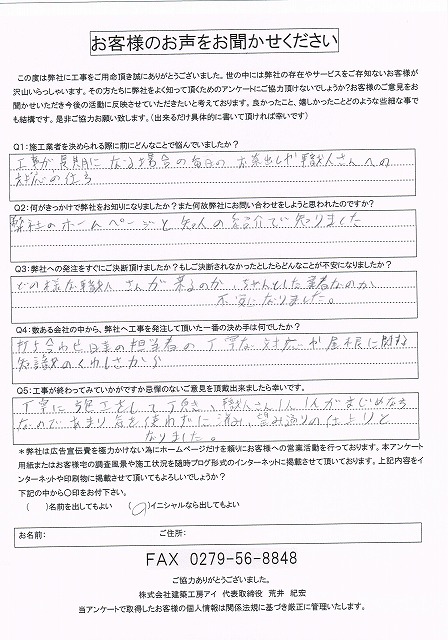 お客様のお声をお聞かせください
この度は弊社に工事をご用命頂き誠にありがとうございました。世の中には弊社の存在やサービスをご存知ないお客様が
沢山いらっしゃいます。その方たちに弊社をよく知って頂くためのアンケートにご協力頂けないでしょうか?お客様のご意見をお
聞かせいただき今後の活動に反映させていただきたいと考えております。良かったこと、嬉しかったことどのような些細な事で
も結構です。是非ご協力お願い致します。（出来るだけ具体的に書いて頂ければ幸いです）
Q1：施工業者を決められる際に前にどんなことで悩んでいましたか?
工事が長期になる場合の毎日のお茶出しや職人さんへの
対応の仕方
Q2：何がきっかけで弊社をお知りになりましたか?また何故弊社にお問い合わせをしようと思われたのですか?
弊社のホームページと知人の紹介で知りました
Q3：弊社への発注をすぐにご決断頂けましたか?もしご決断されなかったとしたらどんなことが不安になりましたか?
どの様な職人さんが来るのか、ちゃんとした業者なのか、
不安になりました。
Q4：数ある会社の中から、弊社へ工事を発注して頂いた一番の決め手は何でしたか?
打ち合わせ日等の担当者の丁寧な対応や屋根に関する
知識のくわしさから
Q5：工事が終わってみていかがですか忌憚のないご意見を頂戴出来ましたら幸いです。
丁寧に施工をして頂き、職人さん1人1人がまじめな方
なのであまり気を使わずに済み、望み通りの仕上りと
なりました。
＊弊社は広告宣伝費を極力かけない為にホームページだけを頼りにお客様への営業活動を行っております。本アンケート
用紙またはお客様宅の調査風景や施工状況を随時ブログ形式のインターネットに掲載させて頂いております。上記内容をイ
ンターネットや印刷物に掲載させて頂いてもよろしいでしょうか?
下記の中から〇印をお付下さい。
（　）名前を出してもよい　（〇）イニシャルなら出してもよい
お名前:　ご住所:
FAX 0279-56-8848
ご協力ありがとうございました。
株式会社建築工房アイ 代表取締役 荒井 紀宏
当アンケートで取得したお客様の個人情報は関係法規に基づき厳正に管理いたします。